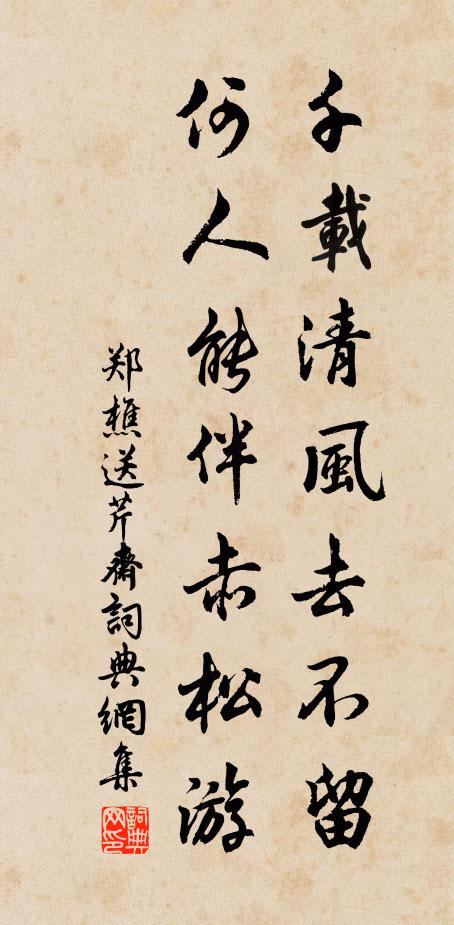 千載清風去不留
何人能伴赤松游
郑樵送芹齋詞典網集
詞典网印